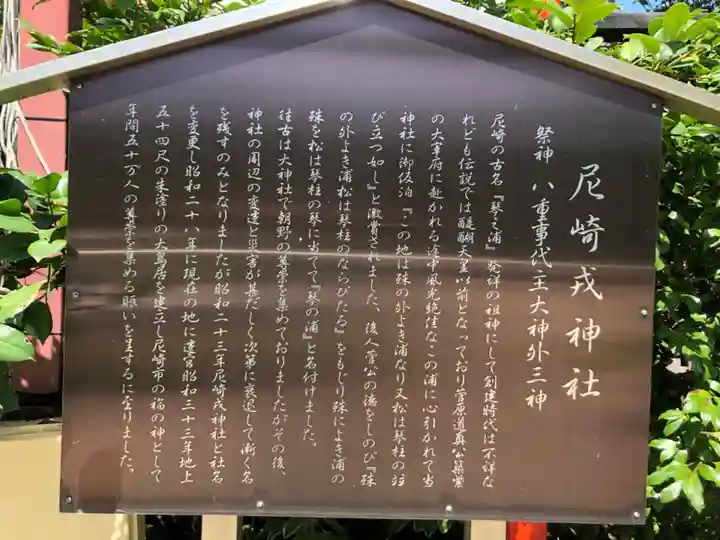 尼崎戎神社
祭神 八重事代主大神外三神
尼崎の古名『琴之浦』発祥の祖神にして創建時代は不詳な
れども伝説では醍醐天皇以前となっており菅原道真公築紫
の大宰府に赴かれる途中風光絶佳なこの浦に心引かれて当
神社に御仮泊『この地は殊の外よき浦なり又松は琴柱の玆
び立つ如し』と激賞されました、後人菅公の徳をしのび『殊
の外よき浦松は琴柱のならびたる』をもじり殊によき浦の
殊を松は琴柱の琴に当てて『琴の浦』と名付けました。
往古は大神社で朝野の尊崇を集めておりましたがその後、
神社の周辺の変遷と災害が甚だしく次第に衰退して漸く名
を残すのみとなりましたが昭和二十三年尼崎戎神社と社名
を変更し昭和二十八年に現在の地に遷宮昭和三十三年地上
五十四尺の朱塗りの大鳥居を建立し尼崎市の福の神として
年間五十万人の尊崇を集める賑いを呈するに至りました。